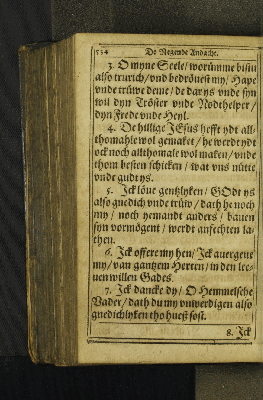 534 De Negende Andacht.
3. O myne Seele/ worümme bistu
also trurich/ vnd bedröuest my/ Hape
vnde trüwe deme/ de dar ys vnde syn
wil dyn Tröster vnde Nodthelper/
dyn Frede vnde Heyl.
4. De hillige JEsus hefft ydt all-
thomahle wol gemaket/ he werdt ydt
ock noch allthomale wol maken/ vnde
thom besten schicken/ wat vns nütte
vnde gudt ys.
5. Ick löue gentzlyken/ GOdt ys
also gnedich vnde trüw/ dath he noch
my/ noch yemandt anders/ bauen
syn vormögent/ werdt anfechten la-
then.
6. Ick offere my hen/ Ick auergeue
my/ van gantzem Herten/ in den lee-
uen willen Gades.
7. Ick dancke dy/ O Hemmelsche
Vader/ dath du my vnwerdigen also
gnedichlyken tho huest
8. Ick